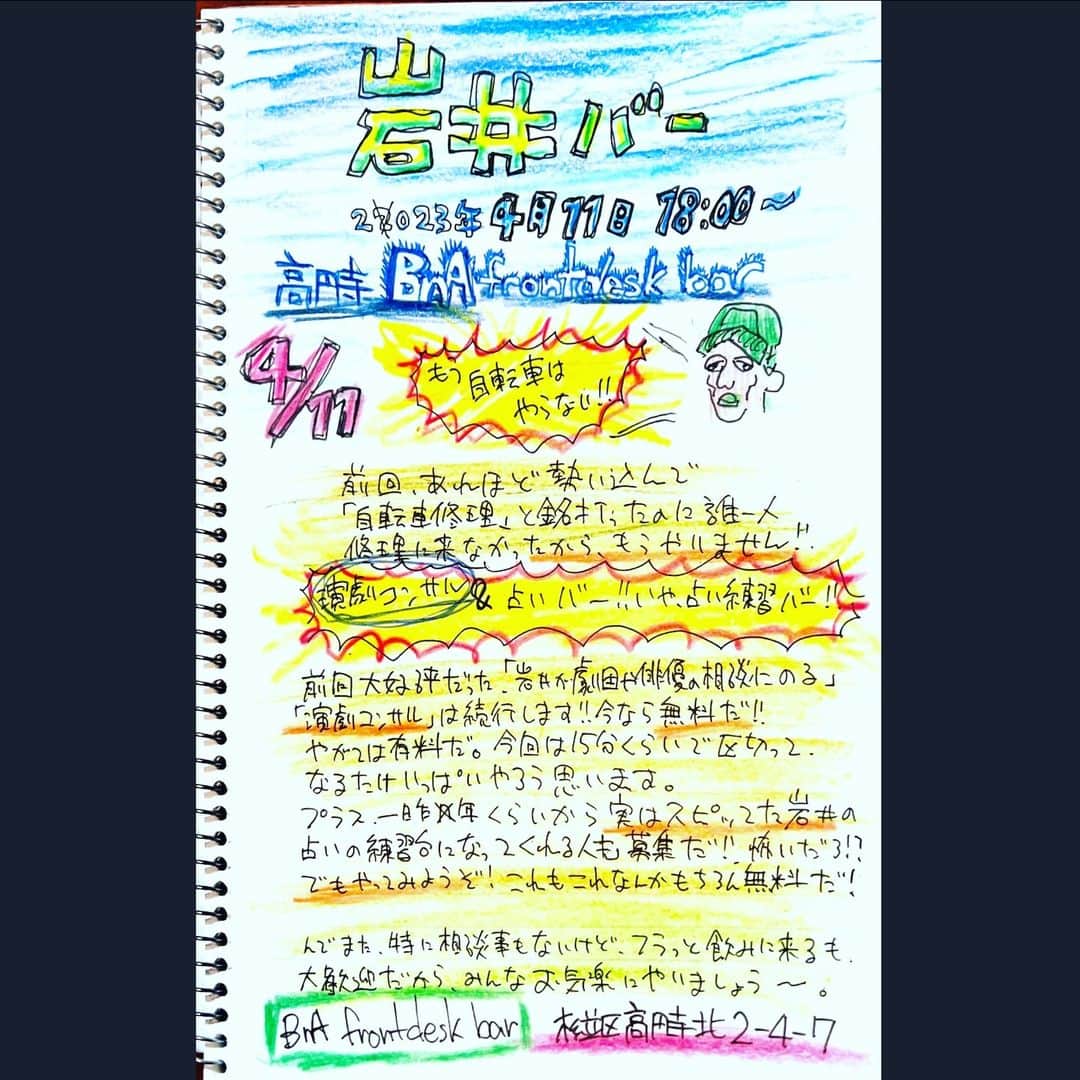 岩井バー
2023年4月11日 18:00〜
高円寺 BnA frontdesk bar
4/11
もう
自転車は
やらない!!
前回、あれほど勢い込んで
「自転車修理」と銘打ったのに誰一人
修理に来なかったから、もうやりません!!
演劇コンサル & 占いバー!!いや、占い練習バー!!
前回大好評だった、「岩井が劇団や俳優の相談にのる」
「演劇コンサル」は続行します!!今なら無料だ!!
やがては有料だ。今回は15分くらいで区切って、
なるたけいっぱいやろう思います。
プラス、一昨年くらいから実はスピってた岩井の
占いの練習台になってくれる人も募集だ!!怖いだろ!?
でもやってみようぞ!これもこれなんかもちろん無料だ!
んでまた、特に相談事もないけど、フラっと飲みに来るも、
大歓迎だから、みんなお気楽にやいましょう〜。
BnA frontdesk bar 杉並区高円寺北2-4-7